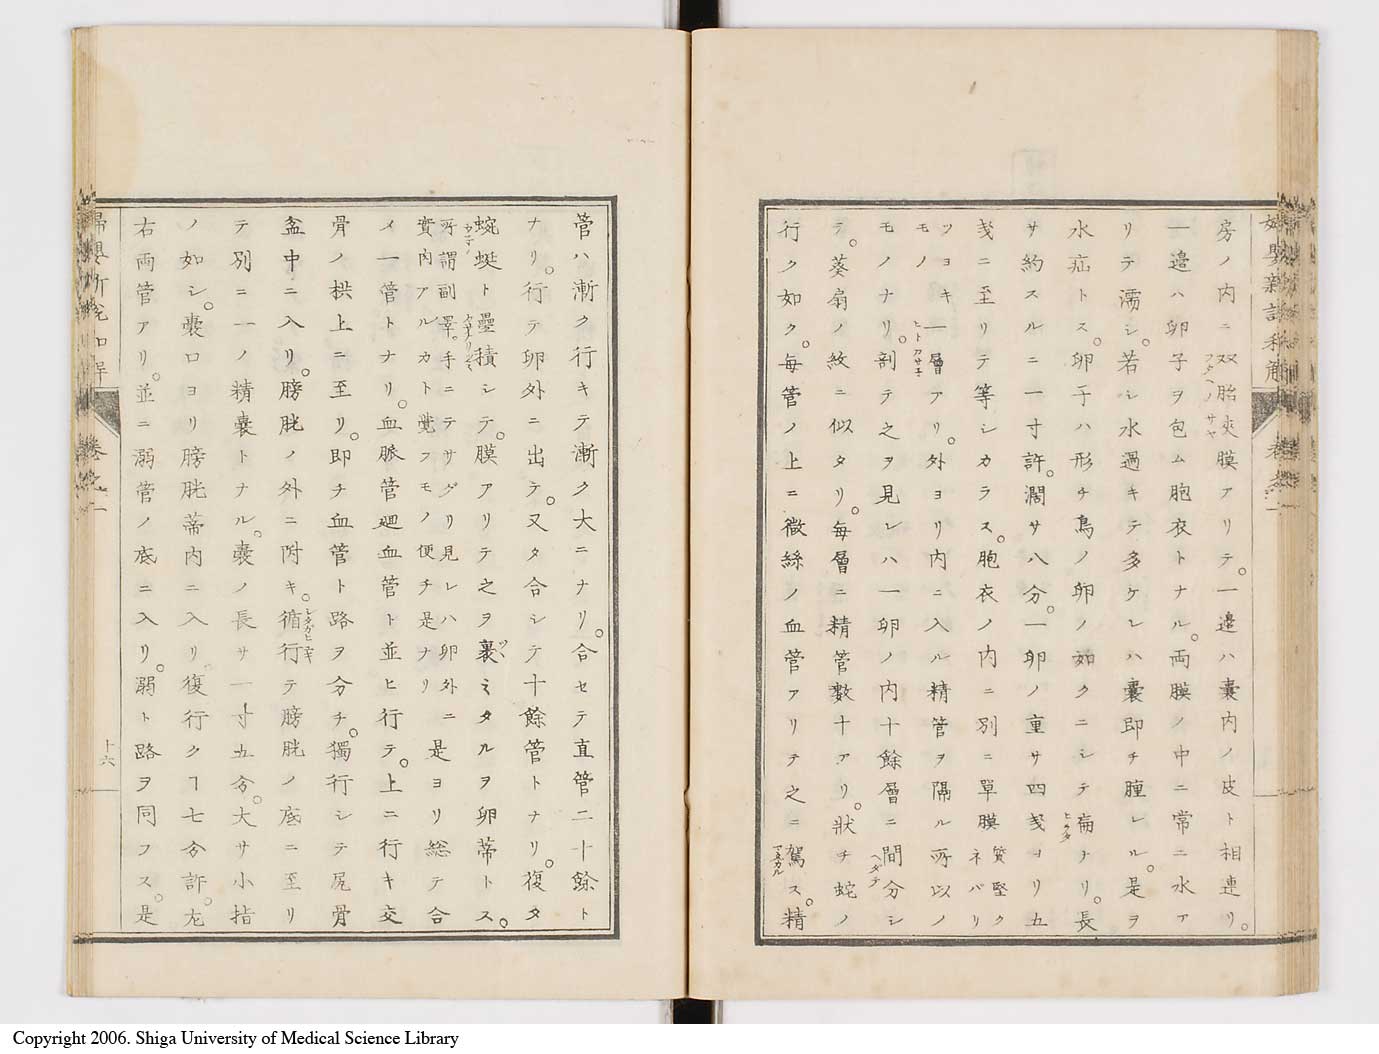 房ノ内ニ双胎夾膜アリテ。一邉ハ嚢内ノ皮ト相連リ。
一邉ハ卵子ヲ包ム胞衣トナル。両膜ノ中ニ常ニ水ア
リテ濡シ。若シ水過キテ多ケレハ嚢即チ腫レル。是ヲ
水疝トス。卵子ハ形チ鳥ノ卵ノ如クニシテ扁ナリ。長
サ約スルニ一寸許。濶サ八分。一卵ノ重サ四戔ヨリ五
戔ニ至リテ等シカラス。胞衣ノ内ニ別ニ單膜質堅クネバリ
ツヨキモノ一層アリ。外ヨリ内ニ入ル精管ヲ隔ル所以ノ
モノナリ。剖テ之ヲ見レハ一卵ノ内十餘層ニ間分シ
テ。葵扇ノ紋ニ似タリ。毎層ニ精管數十アリ。状チ蛇ノ
行ク如ク。毎管ノ上ニ微絲ノ血管アリテ之ニ駕ス。精
管ハ漸ク行キテ漸ク大ニナリ。合セテ直管二十餘ト
ナリ。行テ卵外ニ出テ。又タ合シテ十餘管トナリ。復タ
蜿蜒ト疊積シテ。膜アリテ之ヲ裹ミタルヲ卵蒂トス。
所謂副睪。手ニテサグリ見レハ卵外ニ
實肉アルカト覚フモノ便チ是ナリ
是ヨリ総テ合
メ一管トナリ。血脈管廻血管ト並ヒ行テ。上ニ行キ交
骨ノ栱上ニ至リ。即チ血管ト路ヲ分チ。獨行シテ尻骨
盆中ニ入リ。膀胱ノ外ニ附キ。循行テ膀胱ノ底ニ至リ
テ別ニ一ノ精嚢トナル。嚢ノ長サ一寸五分。大サ小指
ノ如シ。嚢口ヨリ膀胱蒂内ニ入リ。復行クヿ七分許。左
右両管アリ。並ニ溺管ノ底ニ入リ。溺ト路ヲ同フス。是
卷之二
十六
Copyright 2006. Shiga University of Medical Science Library